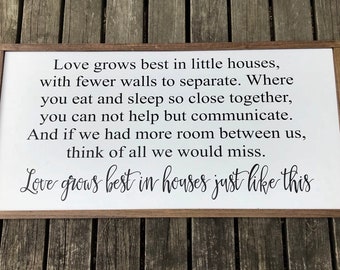 Love grows best in little houses,
with fewer walls to separate. Where
you eat and sleep so close together,
you can not help but communicate.
And if we had more room between us,
think of all we would miss.
Love grows best in houses just like this